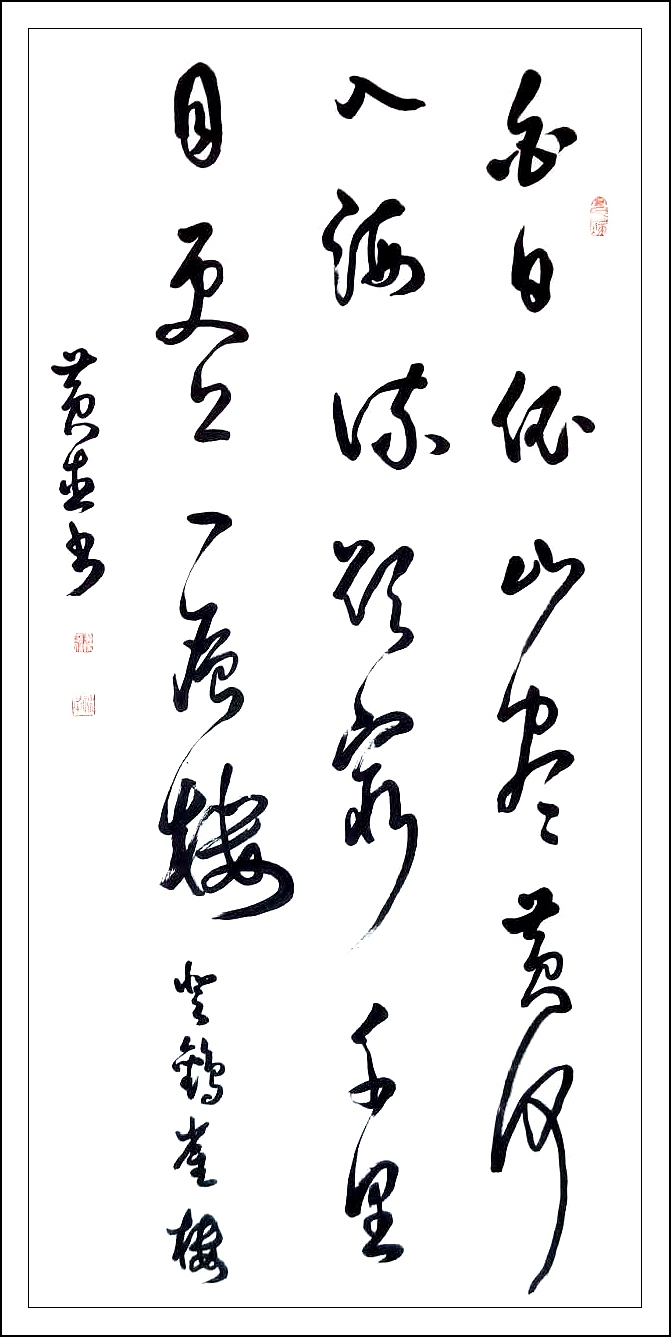 白日依山尽黄河
入海流欲穷千里
目更上一层楼 登鹳雀楼
黄书